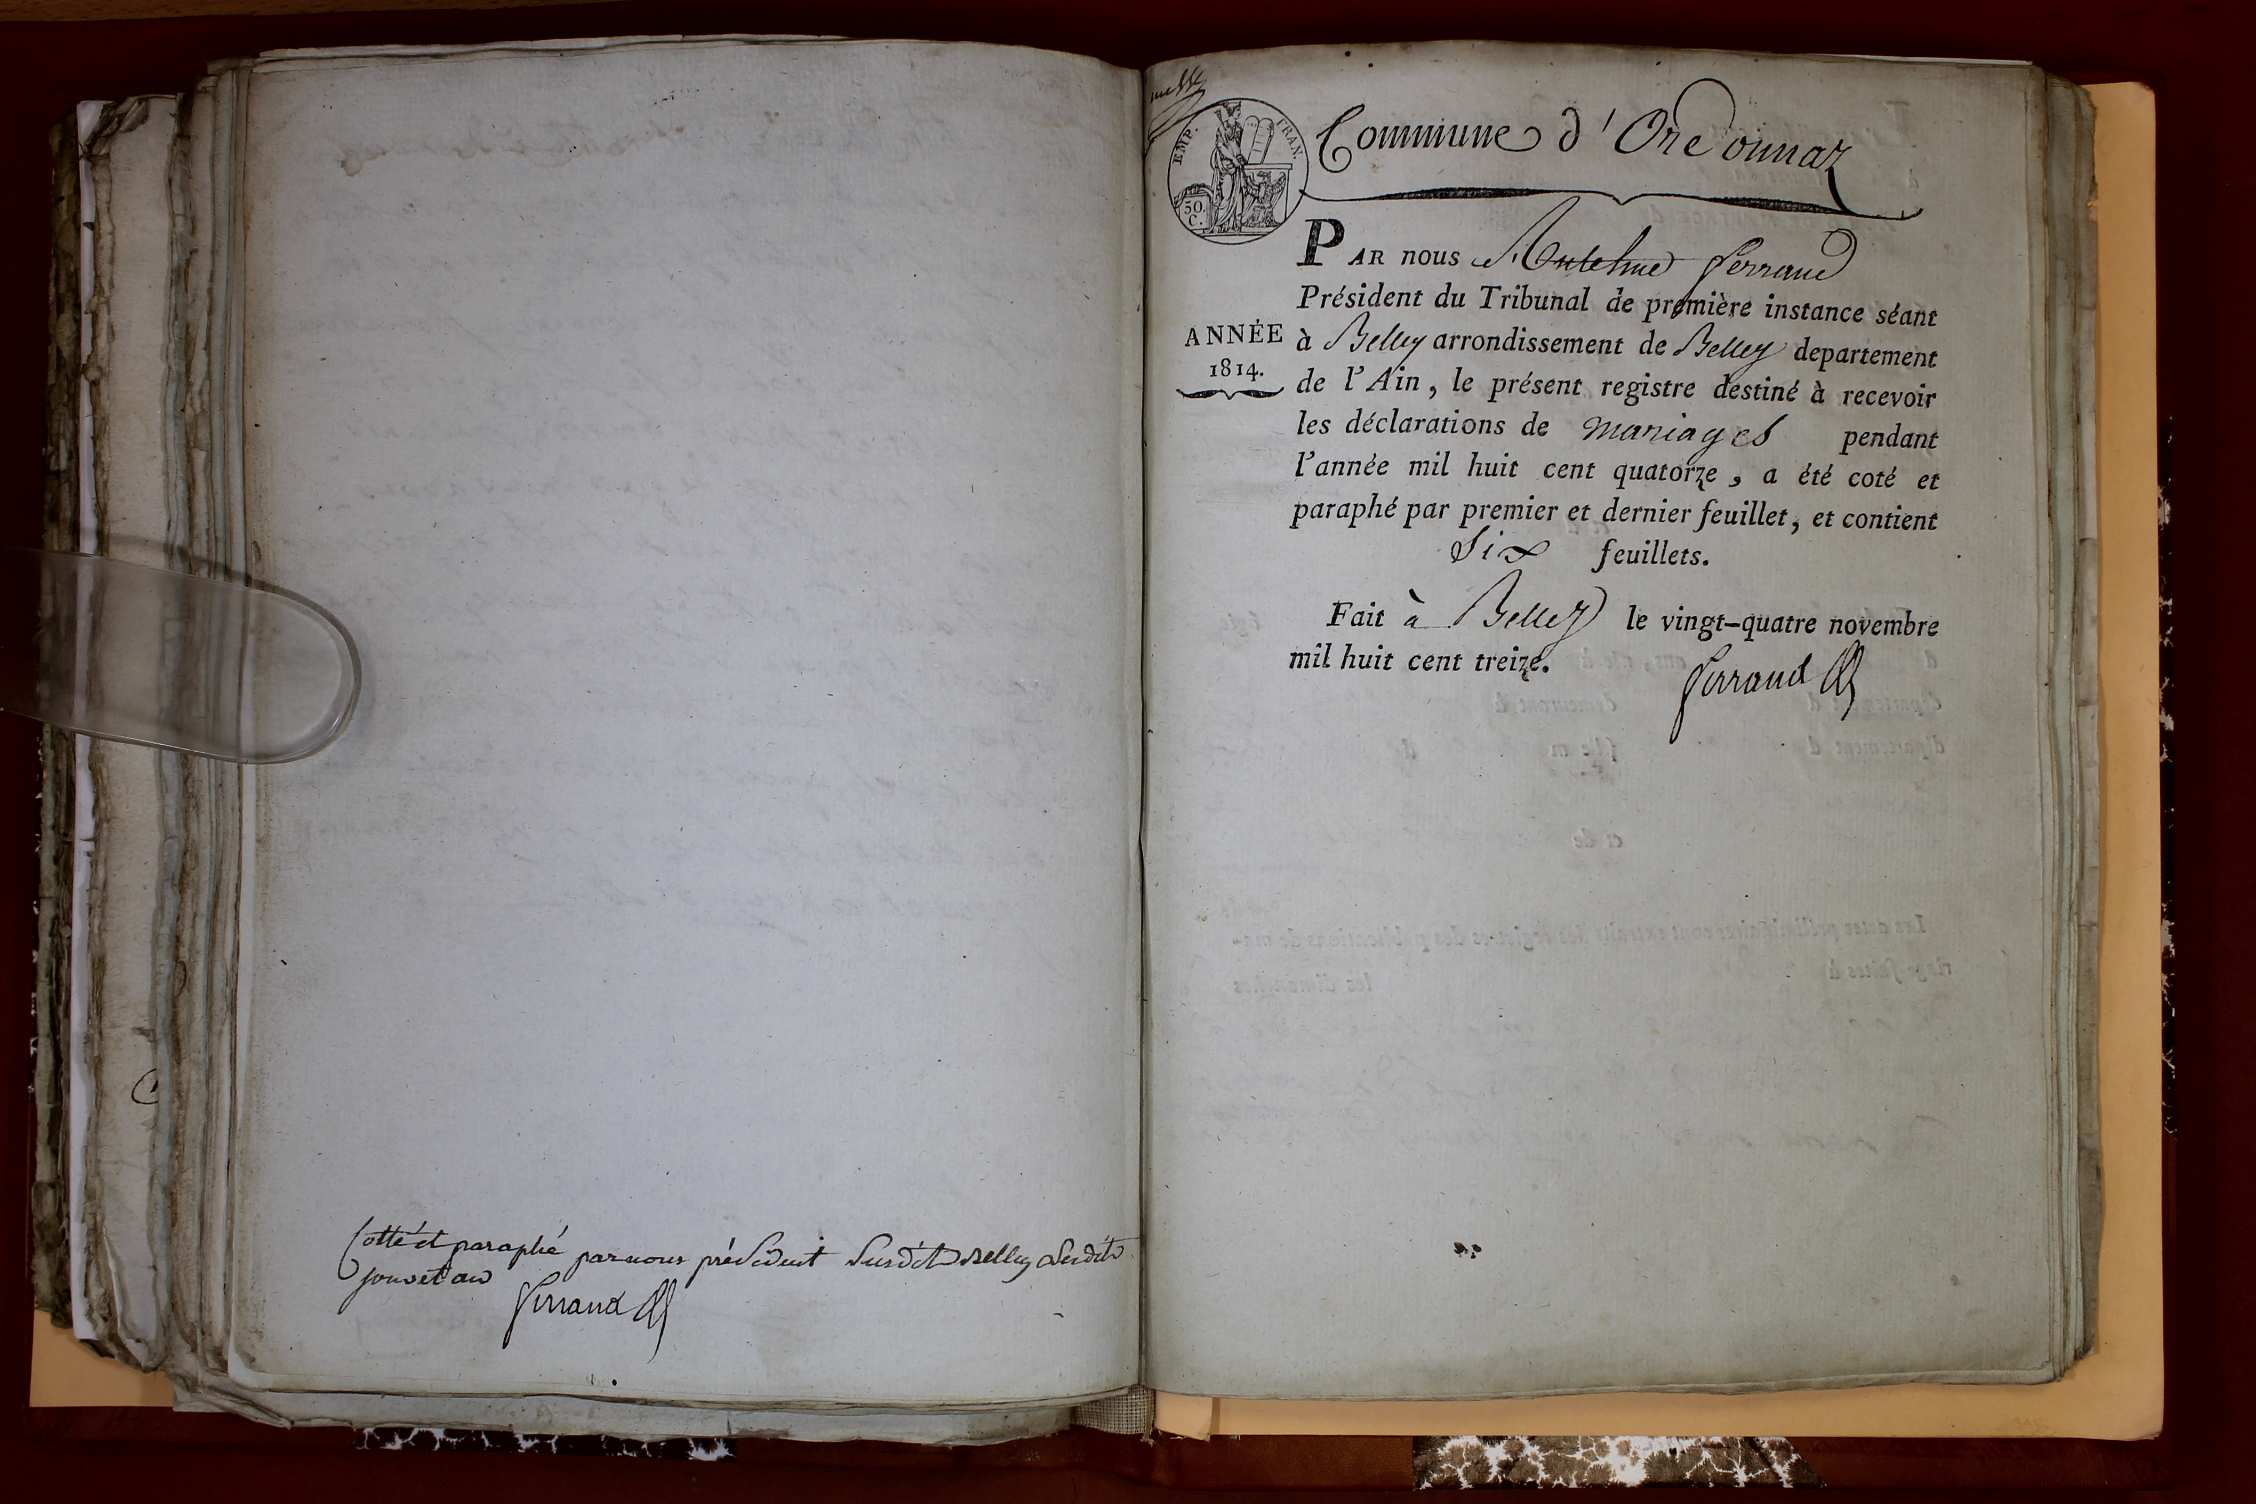 Cotté et paraphé par nous président susdit Belley susdits
jour et an
Ferrand
EMP. FRAN.
30.
C.
Commune d'Ordonnaz
PAR nous Anthelme Ferrand
Président du Tribunal de première instance séant
ANNÉE
1814.
à Belley arrondissement de Belley departement
de l'Ain, le présent registre destiné à recevoir
les déclarations de mariages pendant
l'année mil huit cent quatorze, a été coté et
paraphé par premier et dernier feuillet, et contient
six feuillets.
Fait à Belley le vingt-quatre novembre
mil huit cent treize.
Ferrand